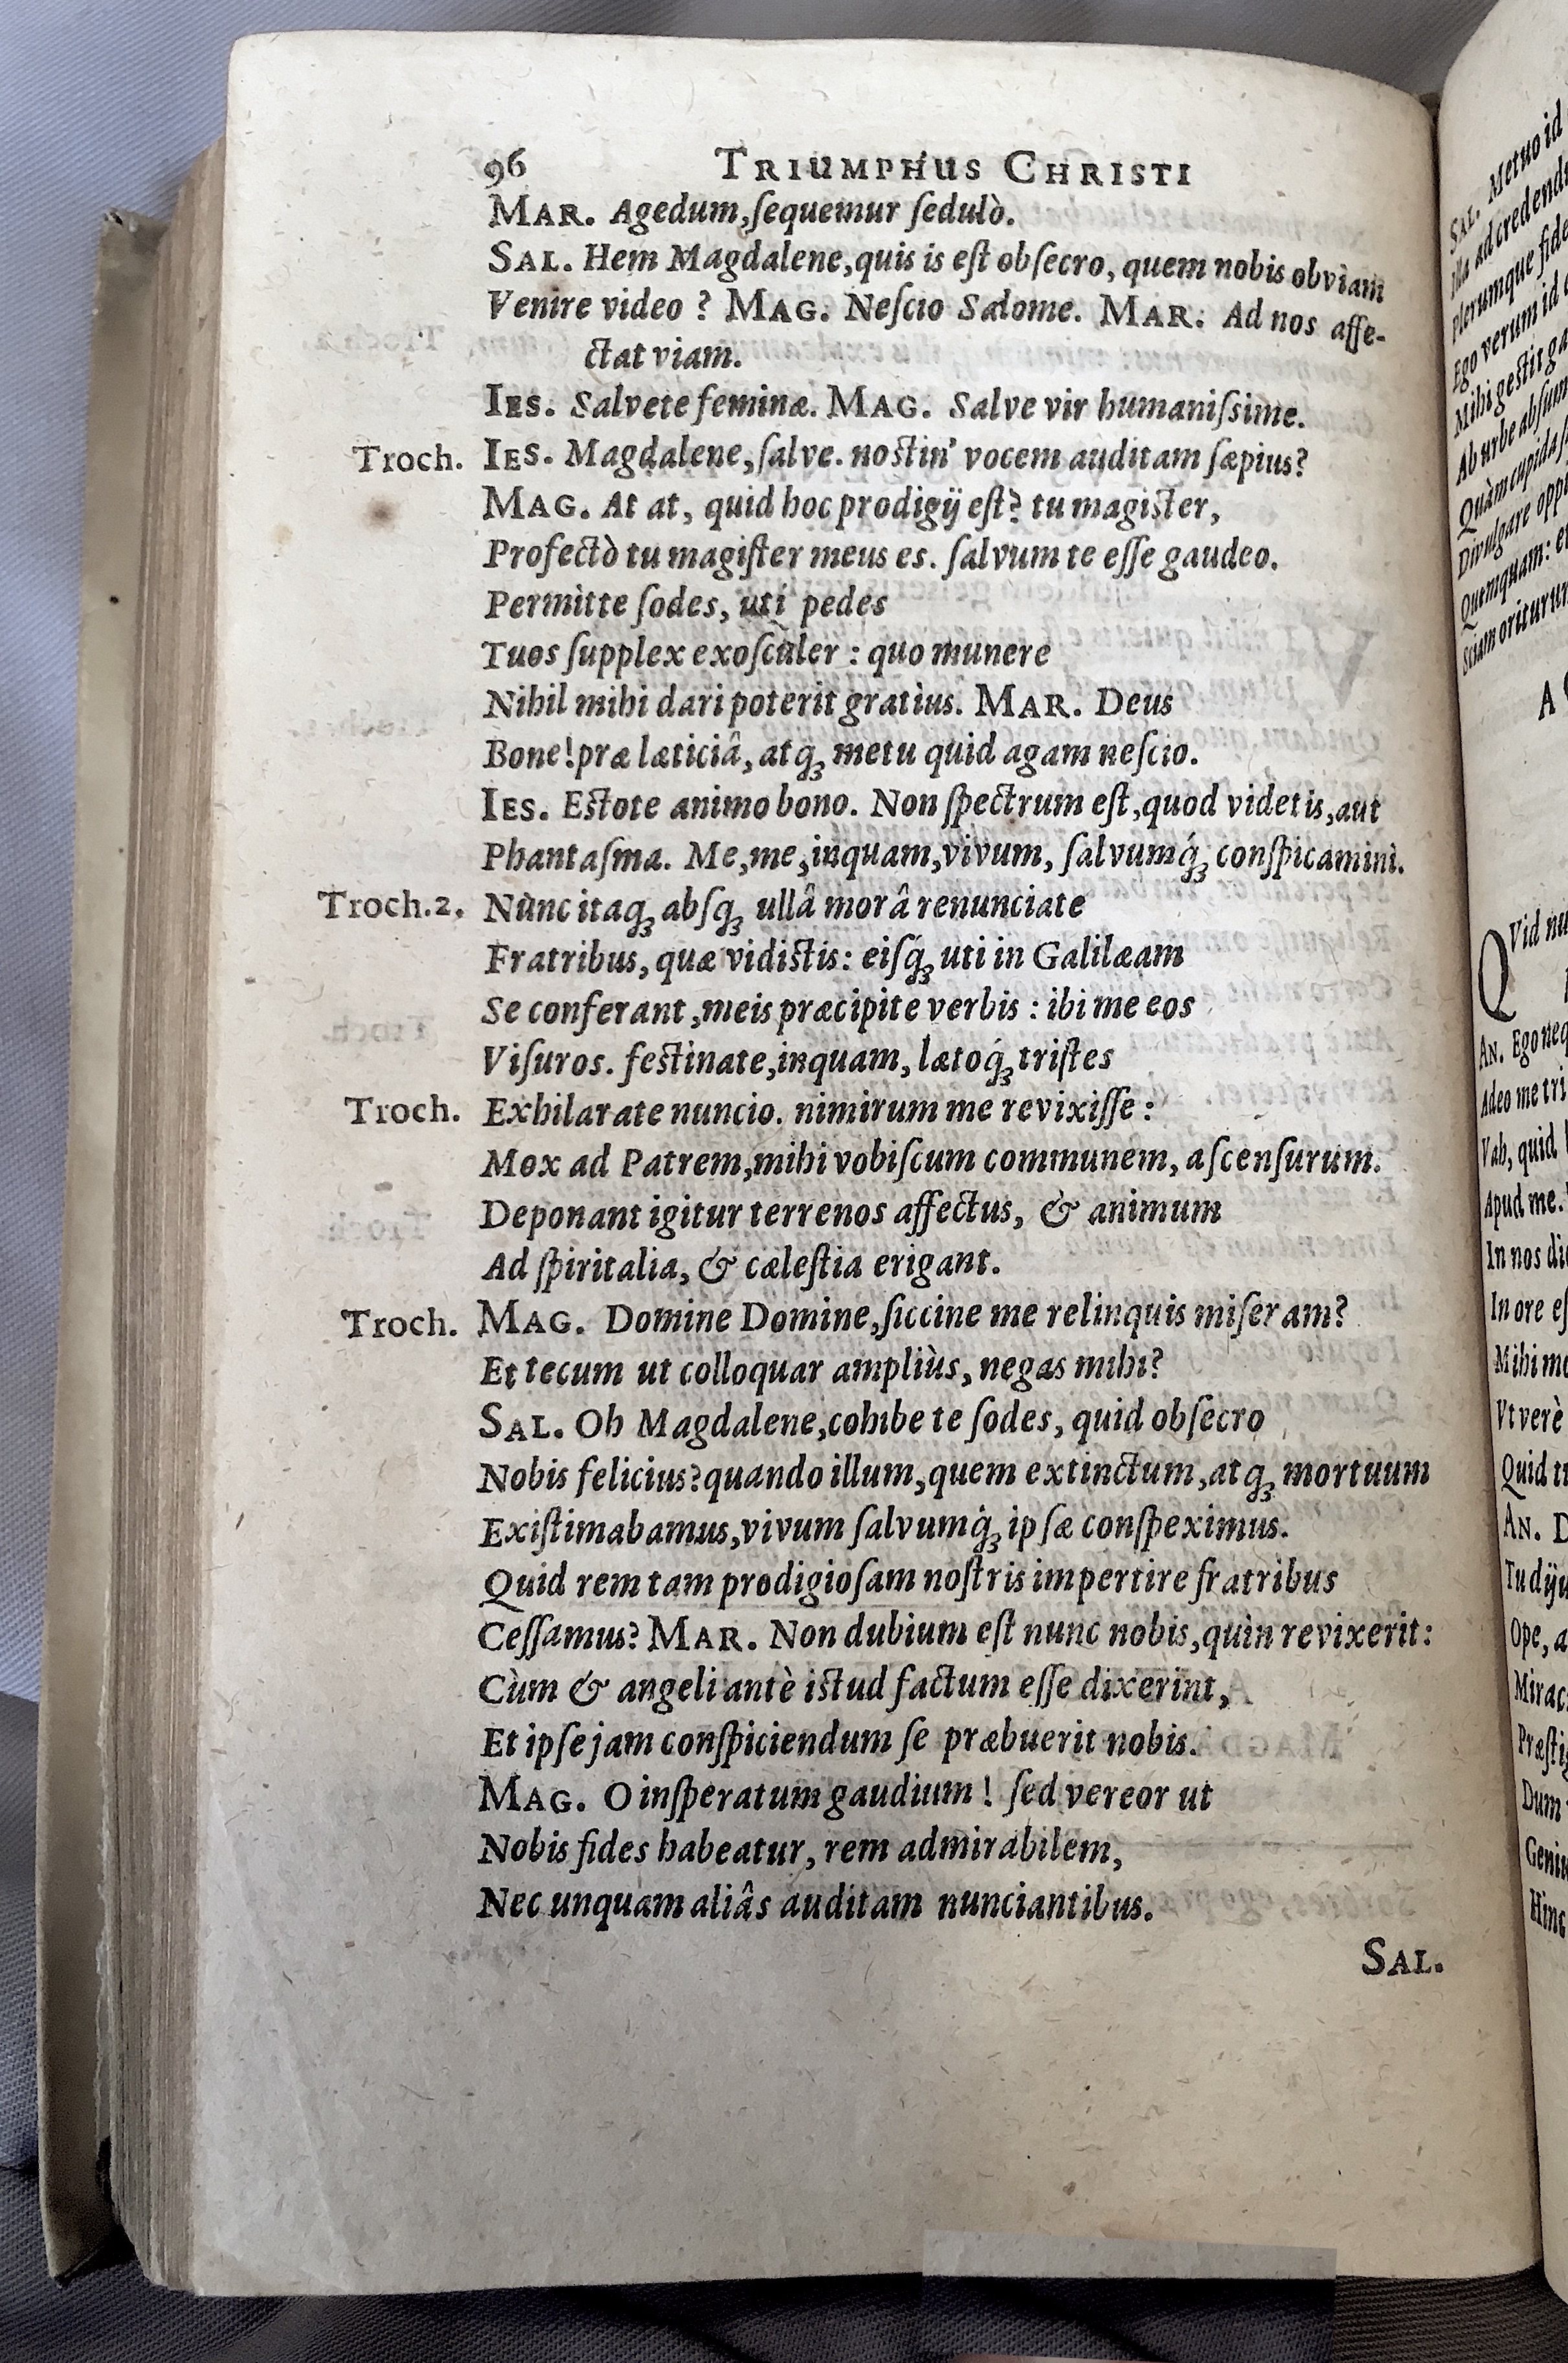 96 TRIUMPHUS CHRISTI
MAR. Agedum,ſequemur ſedulò.
SAL. Hem Magdalene,quis is eſt obſecro, quem nobis obviam
Venire video ? MAG. Neſcio Salome. MAR. Ad nos affe-
ctat viam.
IES. Salvete feminæ. MAG. Salve vir humaniſsime.
Troch. IES. Magdalene,ſalve. noſtin' vocem auditam ſæpius?
MAG. At at, quid hoc prodigij eſt? tu magiſter,
Profectò tu magiſter meus es. ſalvum te eſſe gaudeo.
Permitte ſodes, uti pedes
Tuos ſupplex exoſculer : quo munere
Nihil mihi dari poterit gratius. MAR. Deus
Bone!præ læticiâ, atq; metu quid agam neſcio.
IES. Eſtote animo bono. Non ſpectrum eſt,quod videtis,aut
Phantaſma. Me,me,inquam,vivum, ſalvumq́; conſpicamini.
Troch.2. Nunc itaq; abſq; ullâ morâ renunciate
Fratribus, quæ vidiſtis: eiſq́; uti in Galilæam
Se conferant,meis præcipite verbis : ibi me eos
Viſuros. feſtinate,inquam, lætoq́; triſtes
Troch. Exhilarate nuncio. nimirum me revixiſſe :
Mox ad Patrem,mihi vobiſcum communem, aſcenſurum.
Deponant igitur terrenos affectus, & animum
Ad ſpiritalia, & cæleſtia erigant.
Troch. MAG. Domine Domine,ſiccine me relinquis miſeram?
Et tecum ut colloquar ampliùs, negas mihi?
SAL. Oh Magdalene,cohibe te ſodes, quid obſecro
Nobis felicius?quando illum,quem extinctum,atq; mortuum
Exiſtimabamus,vivum ſalvumq́; ipſæ conſpeximus.
Quid rem tam prodigioſam noſtris impertire fratribus
Ceſſamus? MAR. Non dubium eſt nunc nobis,quin revixerit:
Cùm & angeli antè iſtud factum eſſe dixerint,
Et ipſe jam conſpiciendum ſe præbuerit nobis.
MAG. O inſperatum gaudium ! ſed vereor ut
Nobis fides habeatur, rem admirabilem,
Nec unquam aliâs auditam nunciantibus.
SAL.
SAL. Metuo id
ad credend
plerumque fide
Ego verum id
Mihi geſtit ga
Ab urbe abſum
Quàm cupida
Divulgare oppi
Quemquam: e
oriturum
A
QVid nu
AN. Ego neq
Adeo me tri
Vah, quid
Apud me.
In nos di
In ore eſ
Mihi me
Vt verè
Quid tr
AN. D
Tu diju
Ope, a
Mirac
Præſtig
Dum
Geniu
Hinc